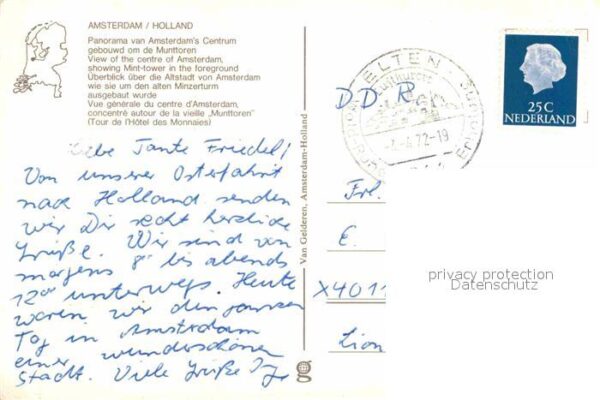 AMSTERDAM / HOLLAND
Panorama van Amsterdam's Centrum
gebouwd om de Munttoren
View of the centre of Amsterdam,
showing Mint-tower in the foreground
Überblick über die Altstadt von Amsterdam
wie sie um den alten Minzerturm
ausgebaut wurde
Vue générale du centre d'Amsterdam,
concentré autour de la vieille „Munttoren"
(Tour de l'Hôtel des Monnaies)
Liebe Tante Friedel!
Von unserer Osterfahrt
nach Holland senden
wir Dir recht herzliche
Grüße. Wir sind von
morgens 8°° bis abends
12°° unterwegs. Heute
waren wir den ganzen
Tag in Amsterdam
einer wunderschönen
Stadt. Viele Grüße
Van Gelderen, Amsterdam-Holland
g
ELTEN
Luftkurort
.4.72-19
25C
NEDERLAND
DDR
Frl.
E.
X 4011
privacy protection
Datenschutz